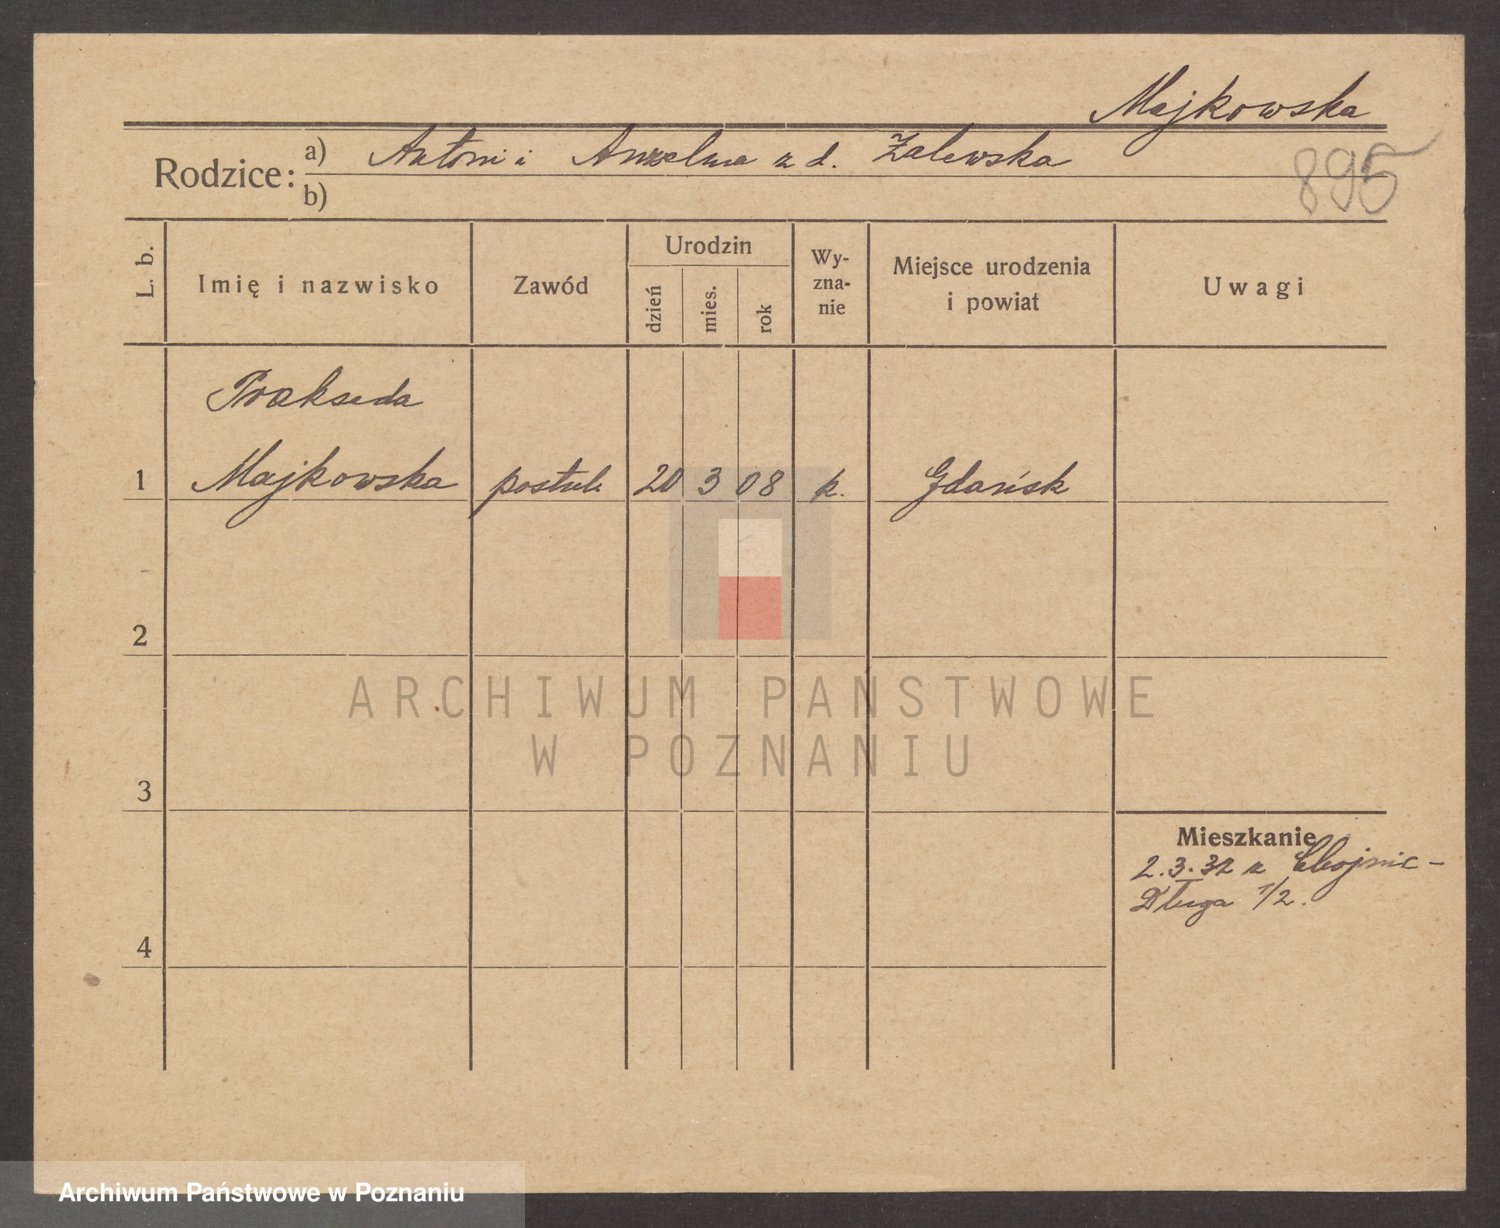 Majkowska
Rodzice: a) Antoni i Anzelma z d. Zalewska
b)
895
L. b.
Imię i nazwisko
Zawód
Urodzin
dzień
mies.
rok
Wy-
zna-
nie
Miejsce urodzenia
i powiat
Uwagi
Prakseda
1 Majkowska postul. 20 3 08 k. Gdańsk
2
3
4
Mieszkanie
2.3.32 z Chojnic –
Długa 1/2.
ARCHIWUM PAŃSTWOWE
W POZNANIU
Archiwum Państwowe w Poznaniu